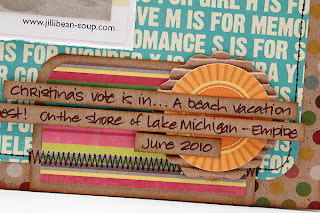 www.jillibean-soup.com
OR GIRL H IS FO
IS FOR MEMO
OMANCE S IS FOR
Christina's vote is in... A beach vacation
est! On the shore of Lake Michigan - Empire
June 2010